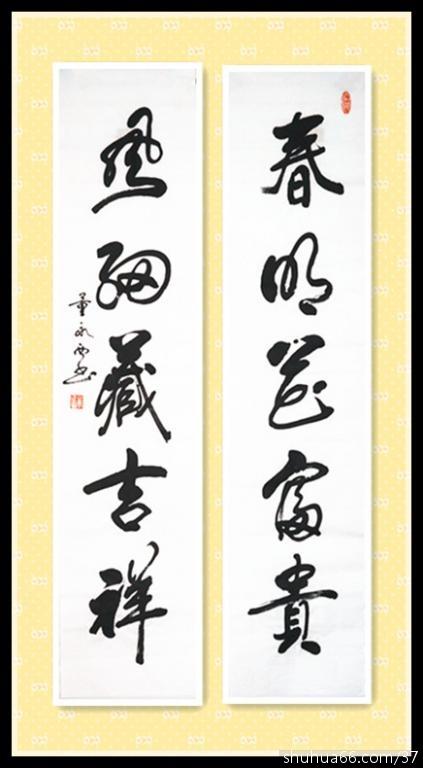 春明花富貴
風細藏吉祥
董永西书
shuhua66.com/37